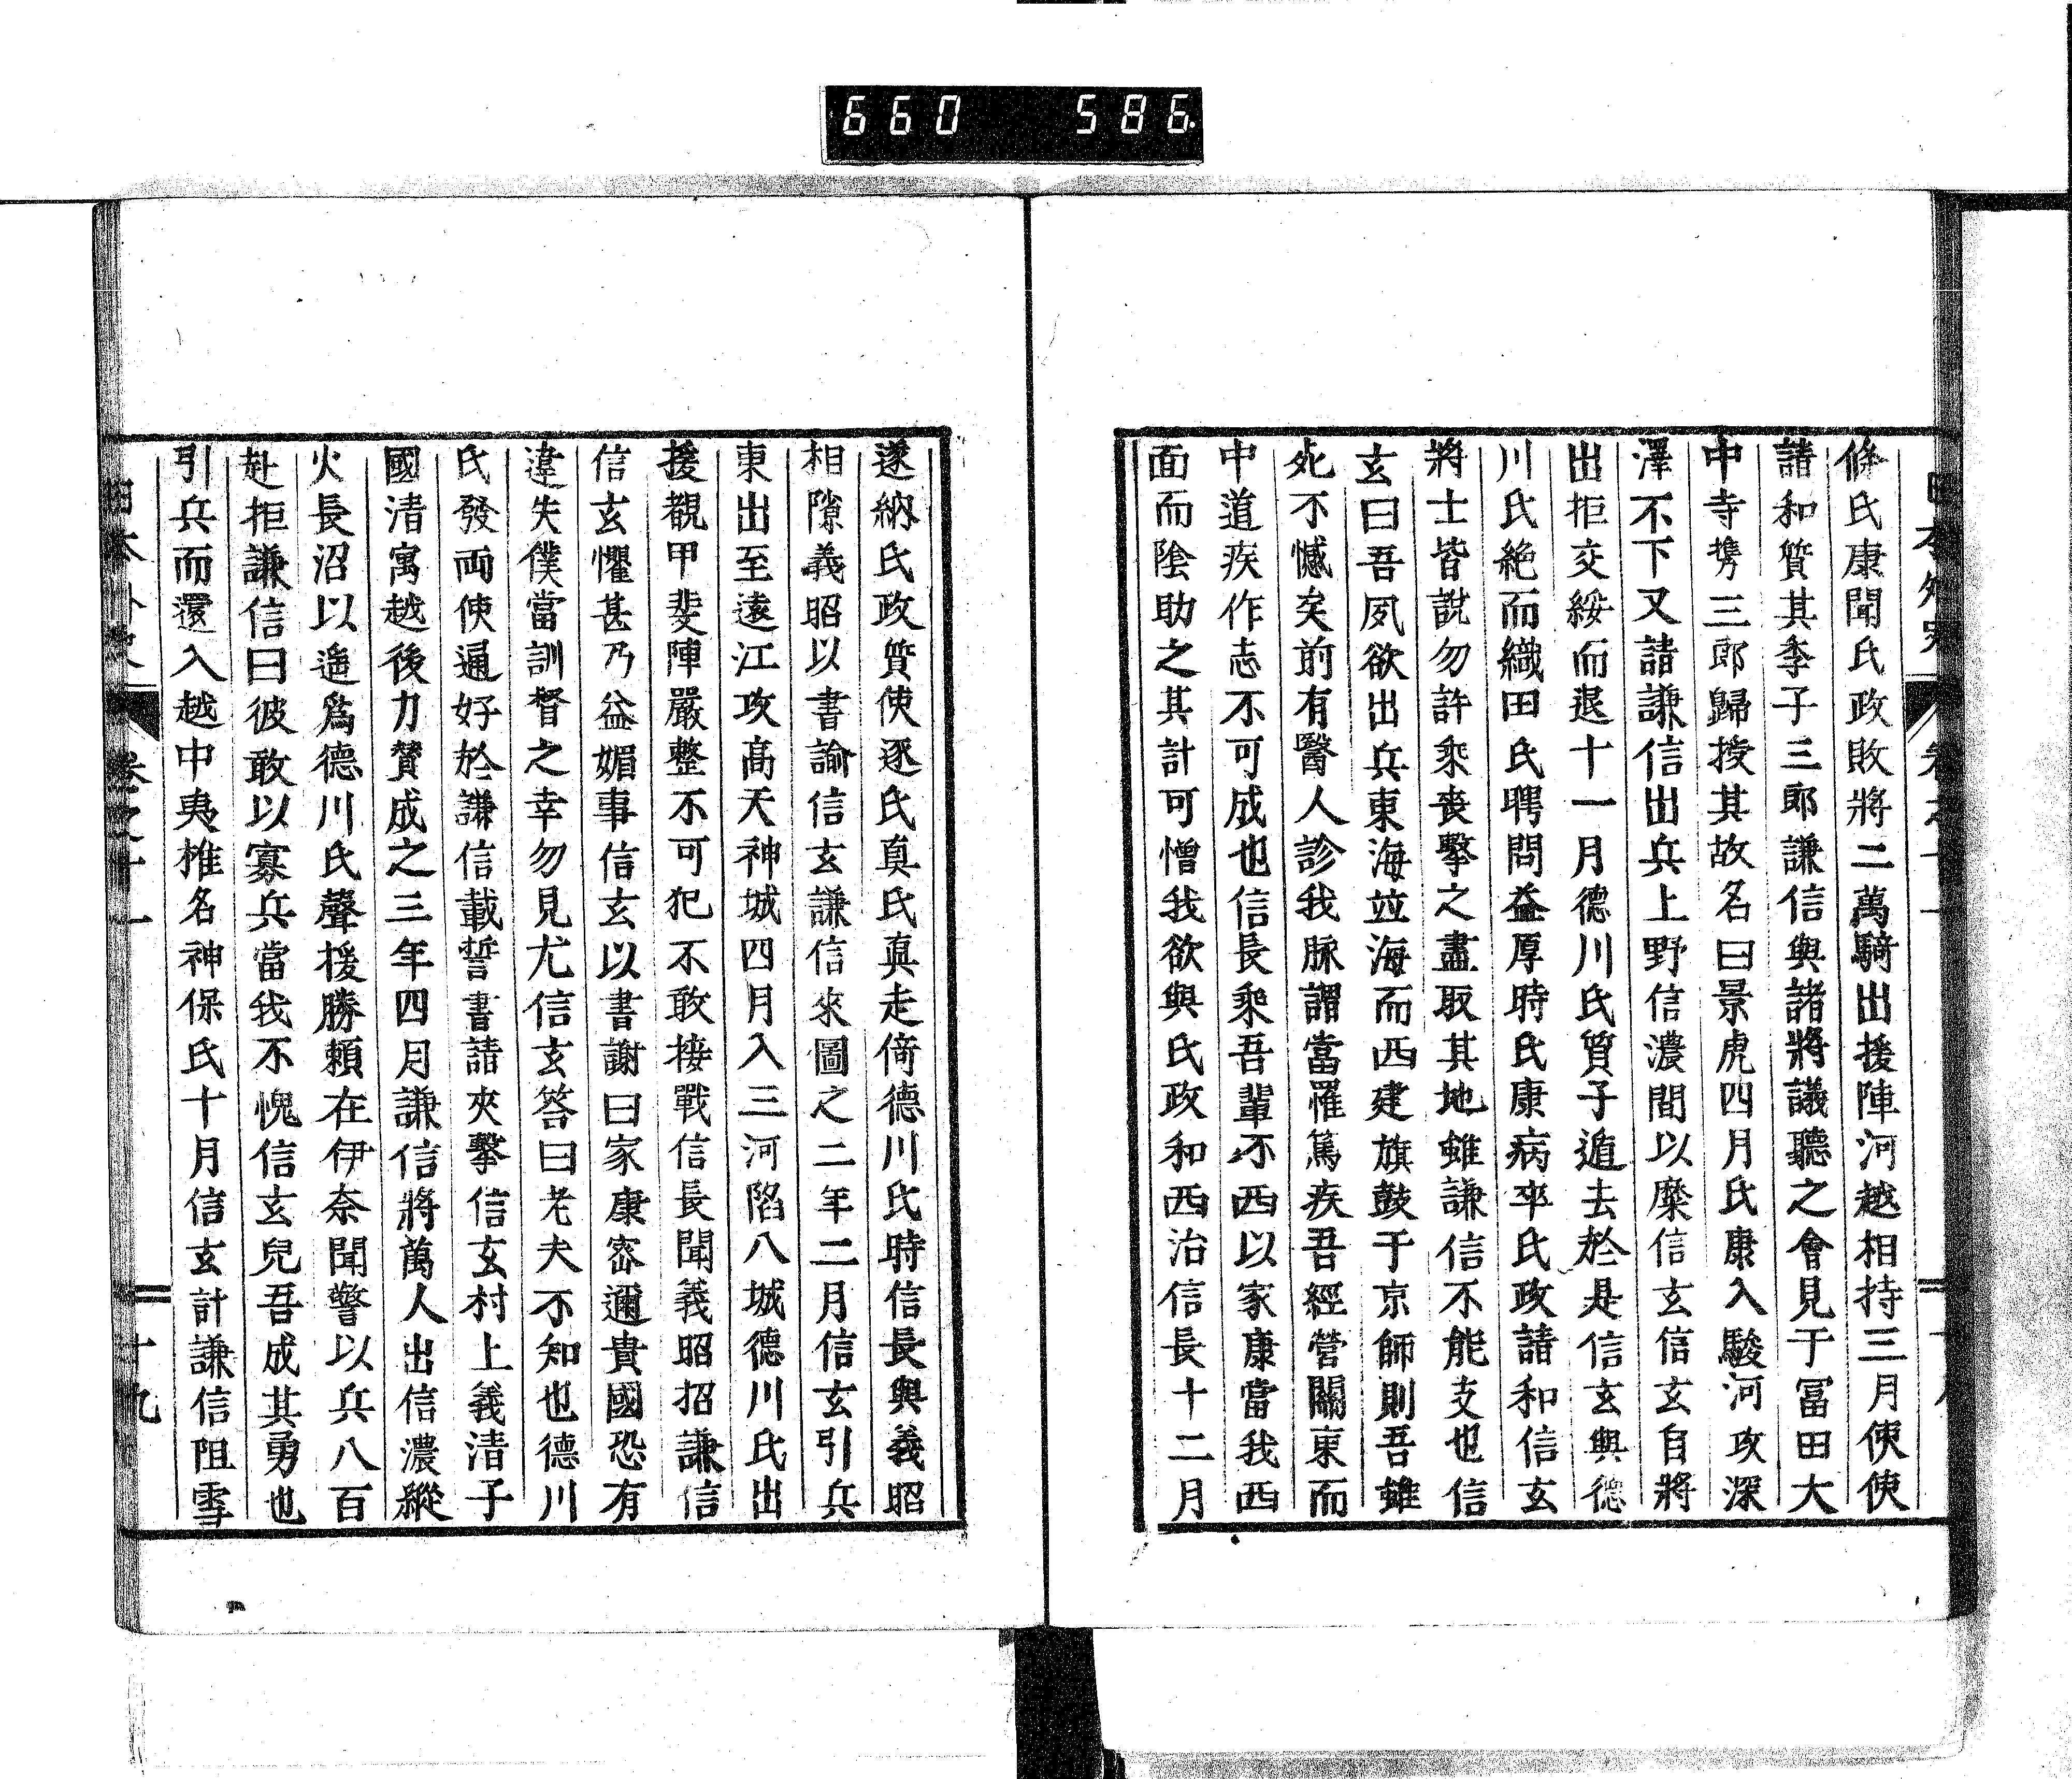 660 586
日本外史 卷之十一 十八
條氏康聞氏政敗將二萬騎出援陣河越相持三月使使
請和質其季子三郎謙信與諸將議聽之會見于冨田大
中寺携三郎歸授其故名曰景虎四月氏康入駿河攻深
澤不下又請謙信出兵上野信濃間以縻信玄信玄自將
出拒交綏而退十一月德川氏質子遁去於是信玄與德
川氏絶而織田氏聘問益厚時氏康病卒氏政請和信玄
將士皆說勿許乘喪擊之盡取其地雖謙信不能支也信
玄曰吾夙欲出兵東海竝海而西建旗鼓于京師則吾雖
死不憾矣前有醫人診我脈謂當罹篤疾吾經營關東而
中道疾作志不可成也信長乘吾輩不西以家康當我西
面而陰助之其計可憎我欲與氏政和西治信長十二月
遂納氏政質使逐氏眞氏眞走倚德川氏時信長與義昭
相隙義昭以書諭信玄謙信來圖之二年二月信玄引兵
東出至遠江攻高天神城四月入三河陷八城德川氏出
援觀甲斐陣嚴整不可犯不敢接戰信長聞義昭招謙信
信玄懼甚乃益媚事信玄以書謝曰家康密邇貴國恐有
違失僕當訓督之幸勿見尤信玄答曰老夫不知也德川
氏發兩使通好於謙信載誓書請夾擊信玄村上義淸子
國淸寓越後力贊成之三年四月謙信將萬人出信濃縱
火長沼以遙爲德川氏聲援勝賴在伊奈聞警以兵八百
赴拒謙信曰彼敢以寡兵當我不愧信玄兒吾成其勇也
引兵而還入越中夷椎名神保氏十月信玄計謙信阻雪
日本外史 卷之十一 十九